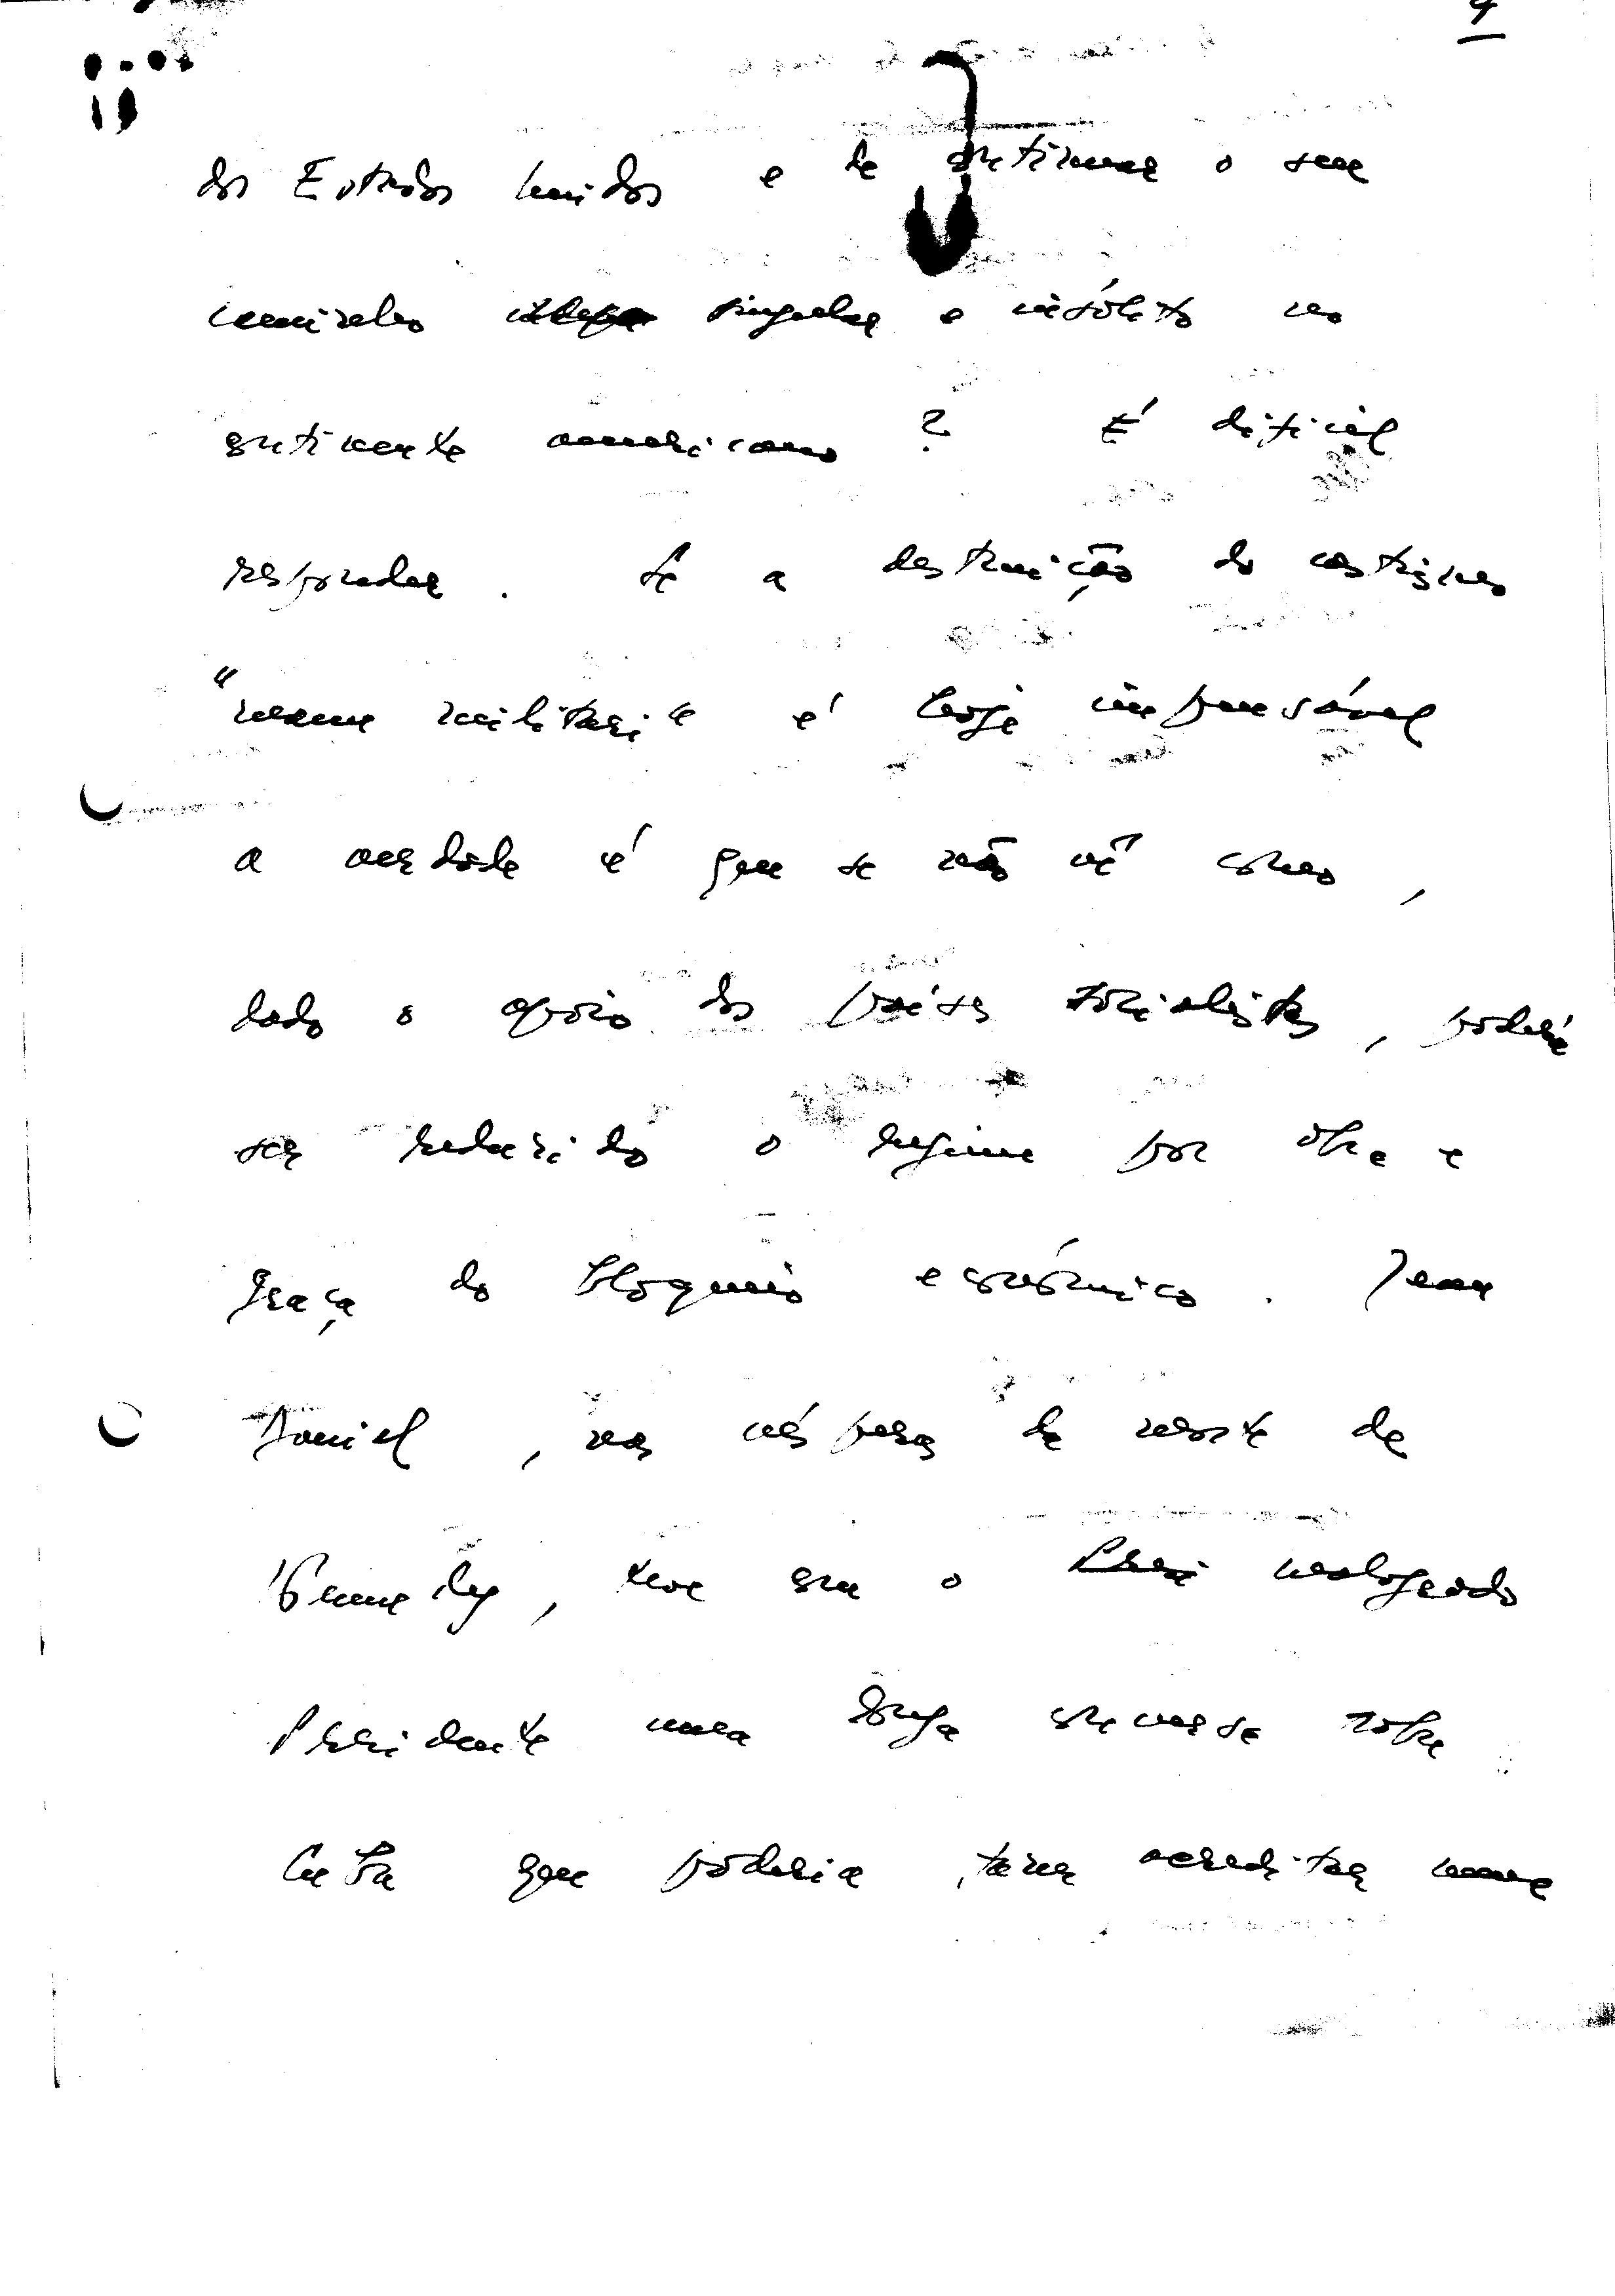 4
dos Estados Unidos e de continuar o seu
caminho singular e insólito no
continente americano? É difícil
responder. Se a destruição do castrismo
"manu militari" é hoje impensável
a verdade é que se não vê como,
dado o apoio dos países socialistas, poderá
ser reduzido o regime por obra e
graça do bloqueio económico. Jean
Daniel, nas vésperas da morte de
Kennedy, teve com o malogrado
Presidente uma longa conversa sobre
Cuba que poderia fazer acreditar numa